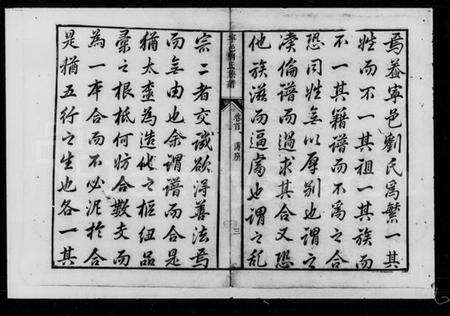 焉蓋寧邑劉氏為繁一其
姓而不一其祖一其族而
不一其籍譜而不為之合
恐同姓無以厚別也謂之
瀆倫譜而過求其合又恐
他族滋而逼處也謂之乱
卷首
三
宗二者交譏欲得善法焉
而無由也余謂譜而合是
猶太極為造化之枢紐品
彙之根柢何妨合數支而
為一本合而不必泥於合
是猶五行之生也各一其